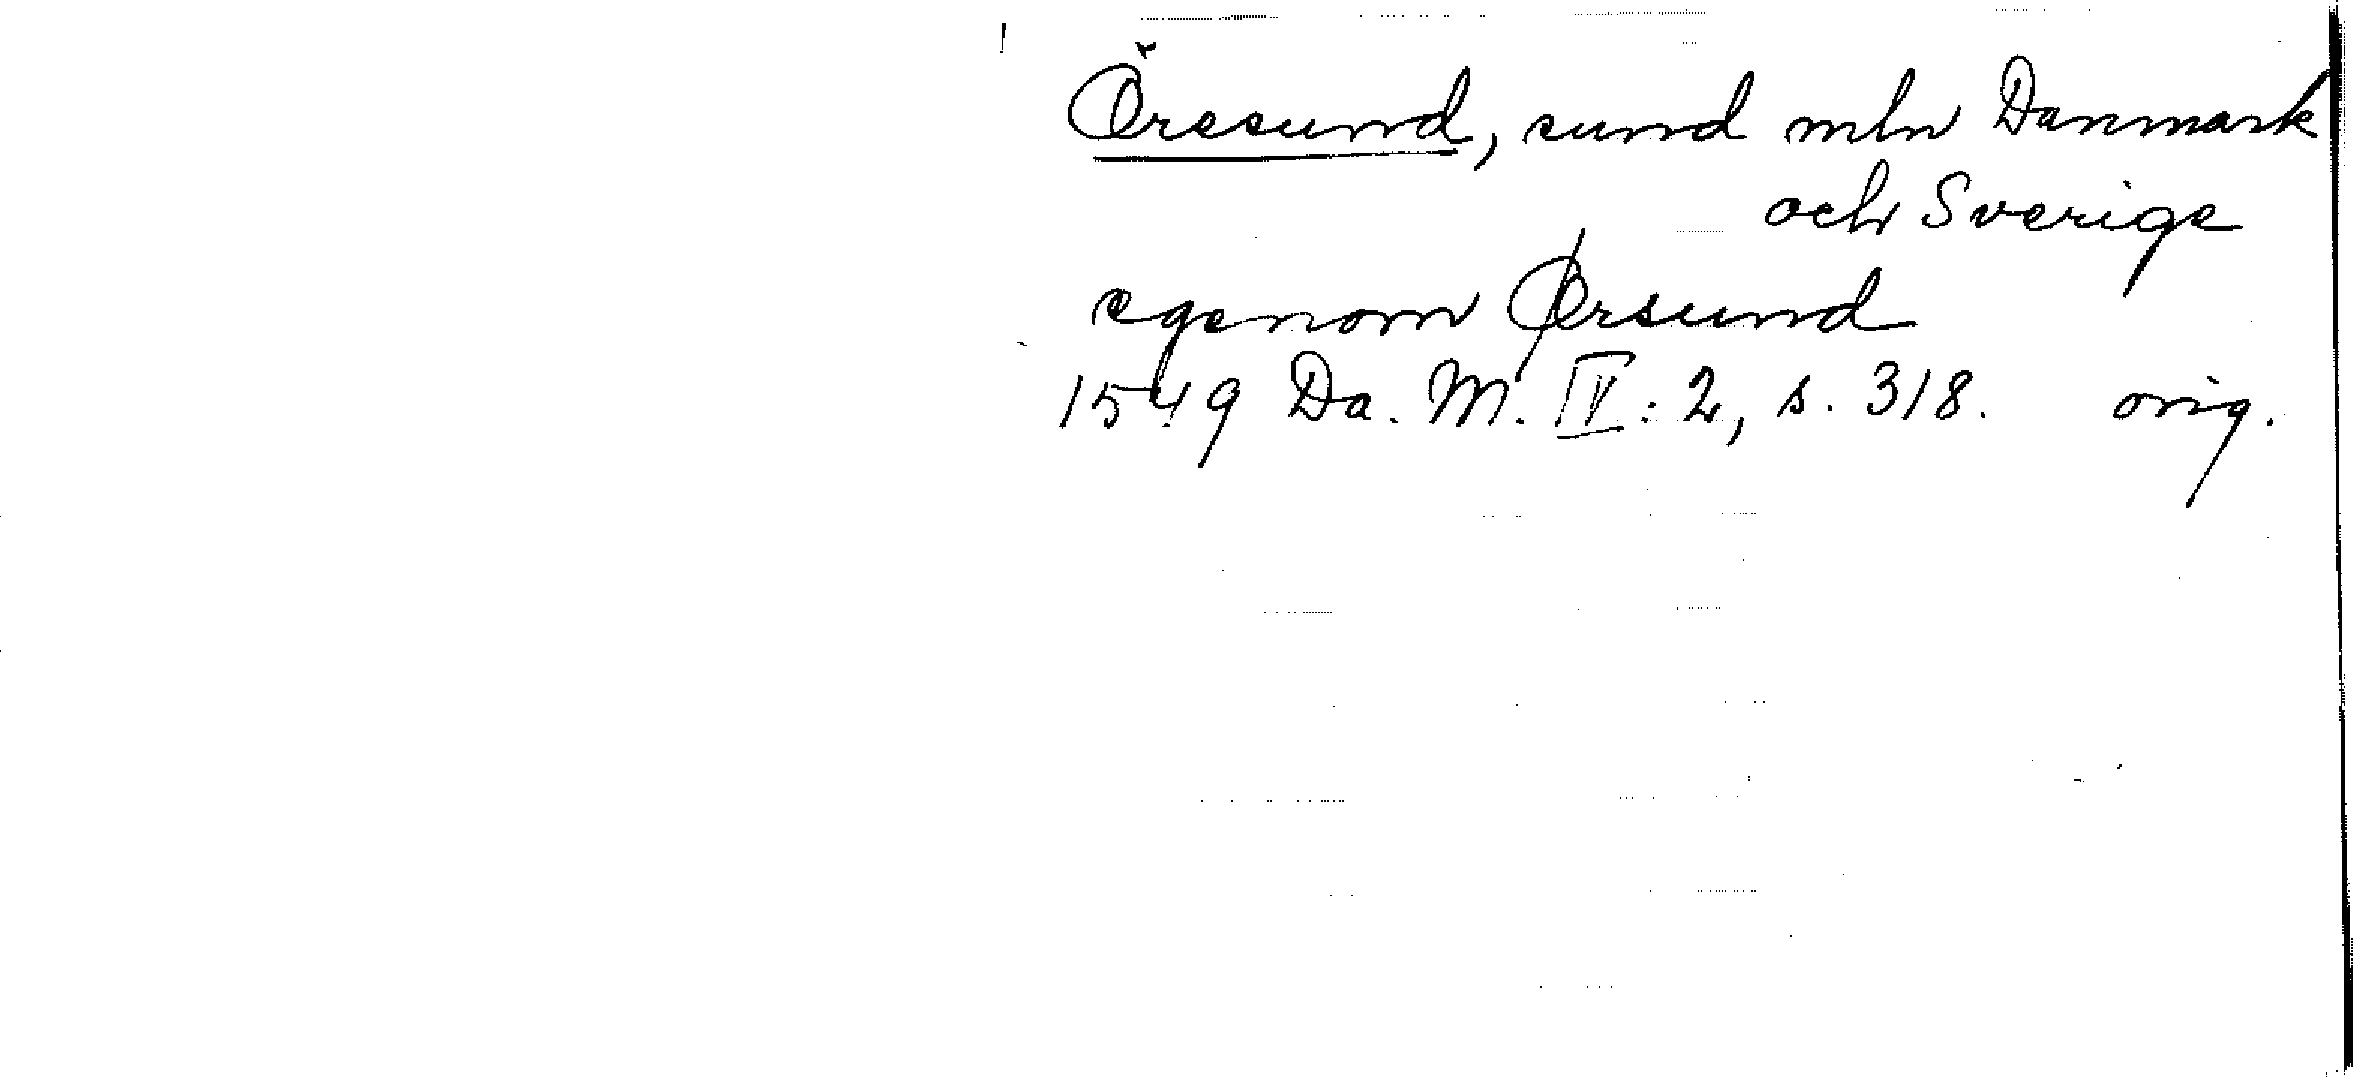 Öresund, sund mln Danmark
och Sverige
egenom Ørsund
1549 Da. M. IV: 2, s. 318. orig.